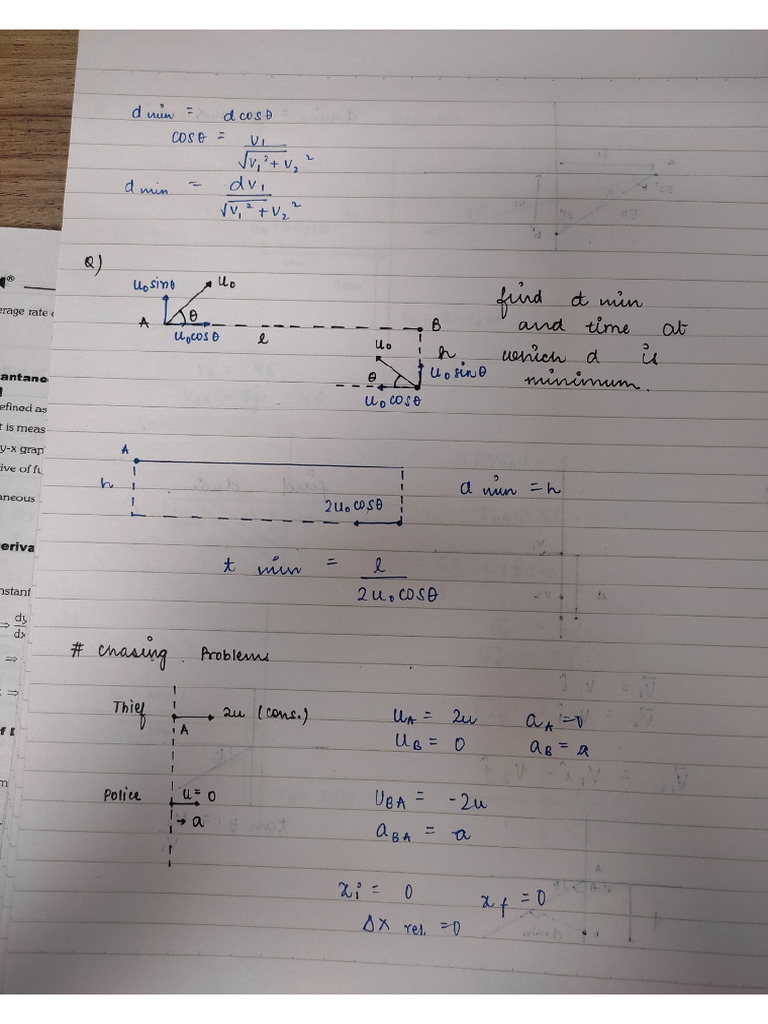 d min = d cosθ
cosθ = V₁ / √V₁² + V₂²
d min = dV₁ / √V₁² + V₂²
Q)
u₀ sinθ
u₀
A
θ
u₀ cosθ
l
B
h
u₀
u₀ sinθ
θ
u₀ cosθ
find d min
and time at
which d is
minimum.
A
h
2u₀ cosθ
d min = h
t min = l / 2u₀ cosθ
# Chasing Problems
Thief
A
2u (cons.)
u_A = 2u a_A = 0
u_B = 0 a_B = a
Police
u = 0
→ a
U_BA = -2u
a_BA = a
x_i = 0 x_f = 0
Δx rel. = 0
®
erage rate
antane
efined as
t is meas
y-x grap
ive of fu
aneous
eriva
nstant
⇒ dy/dx
⇒
⇒